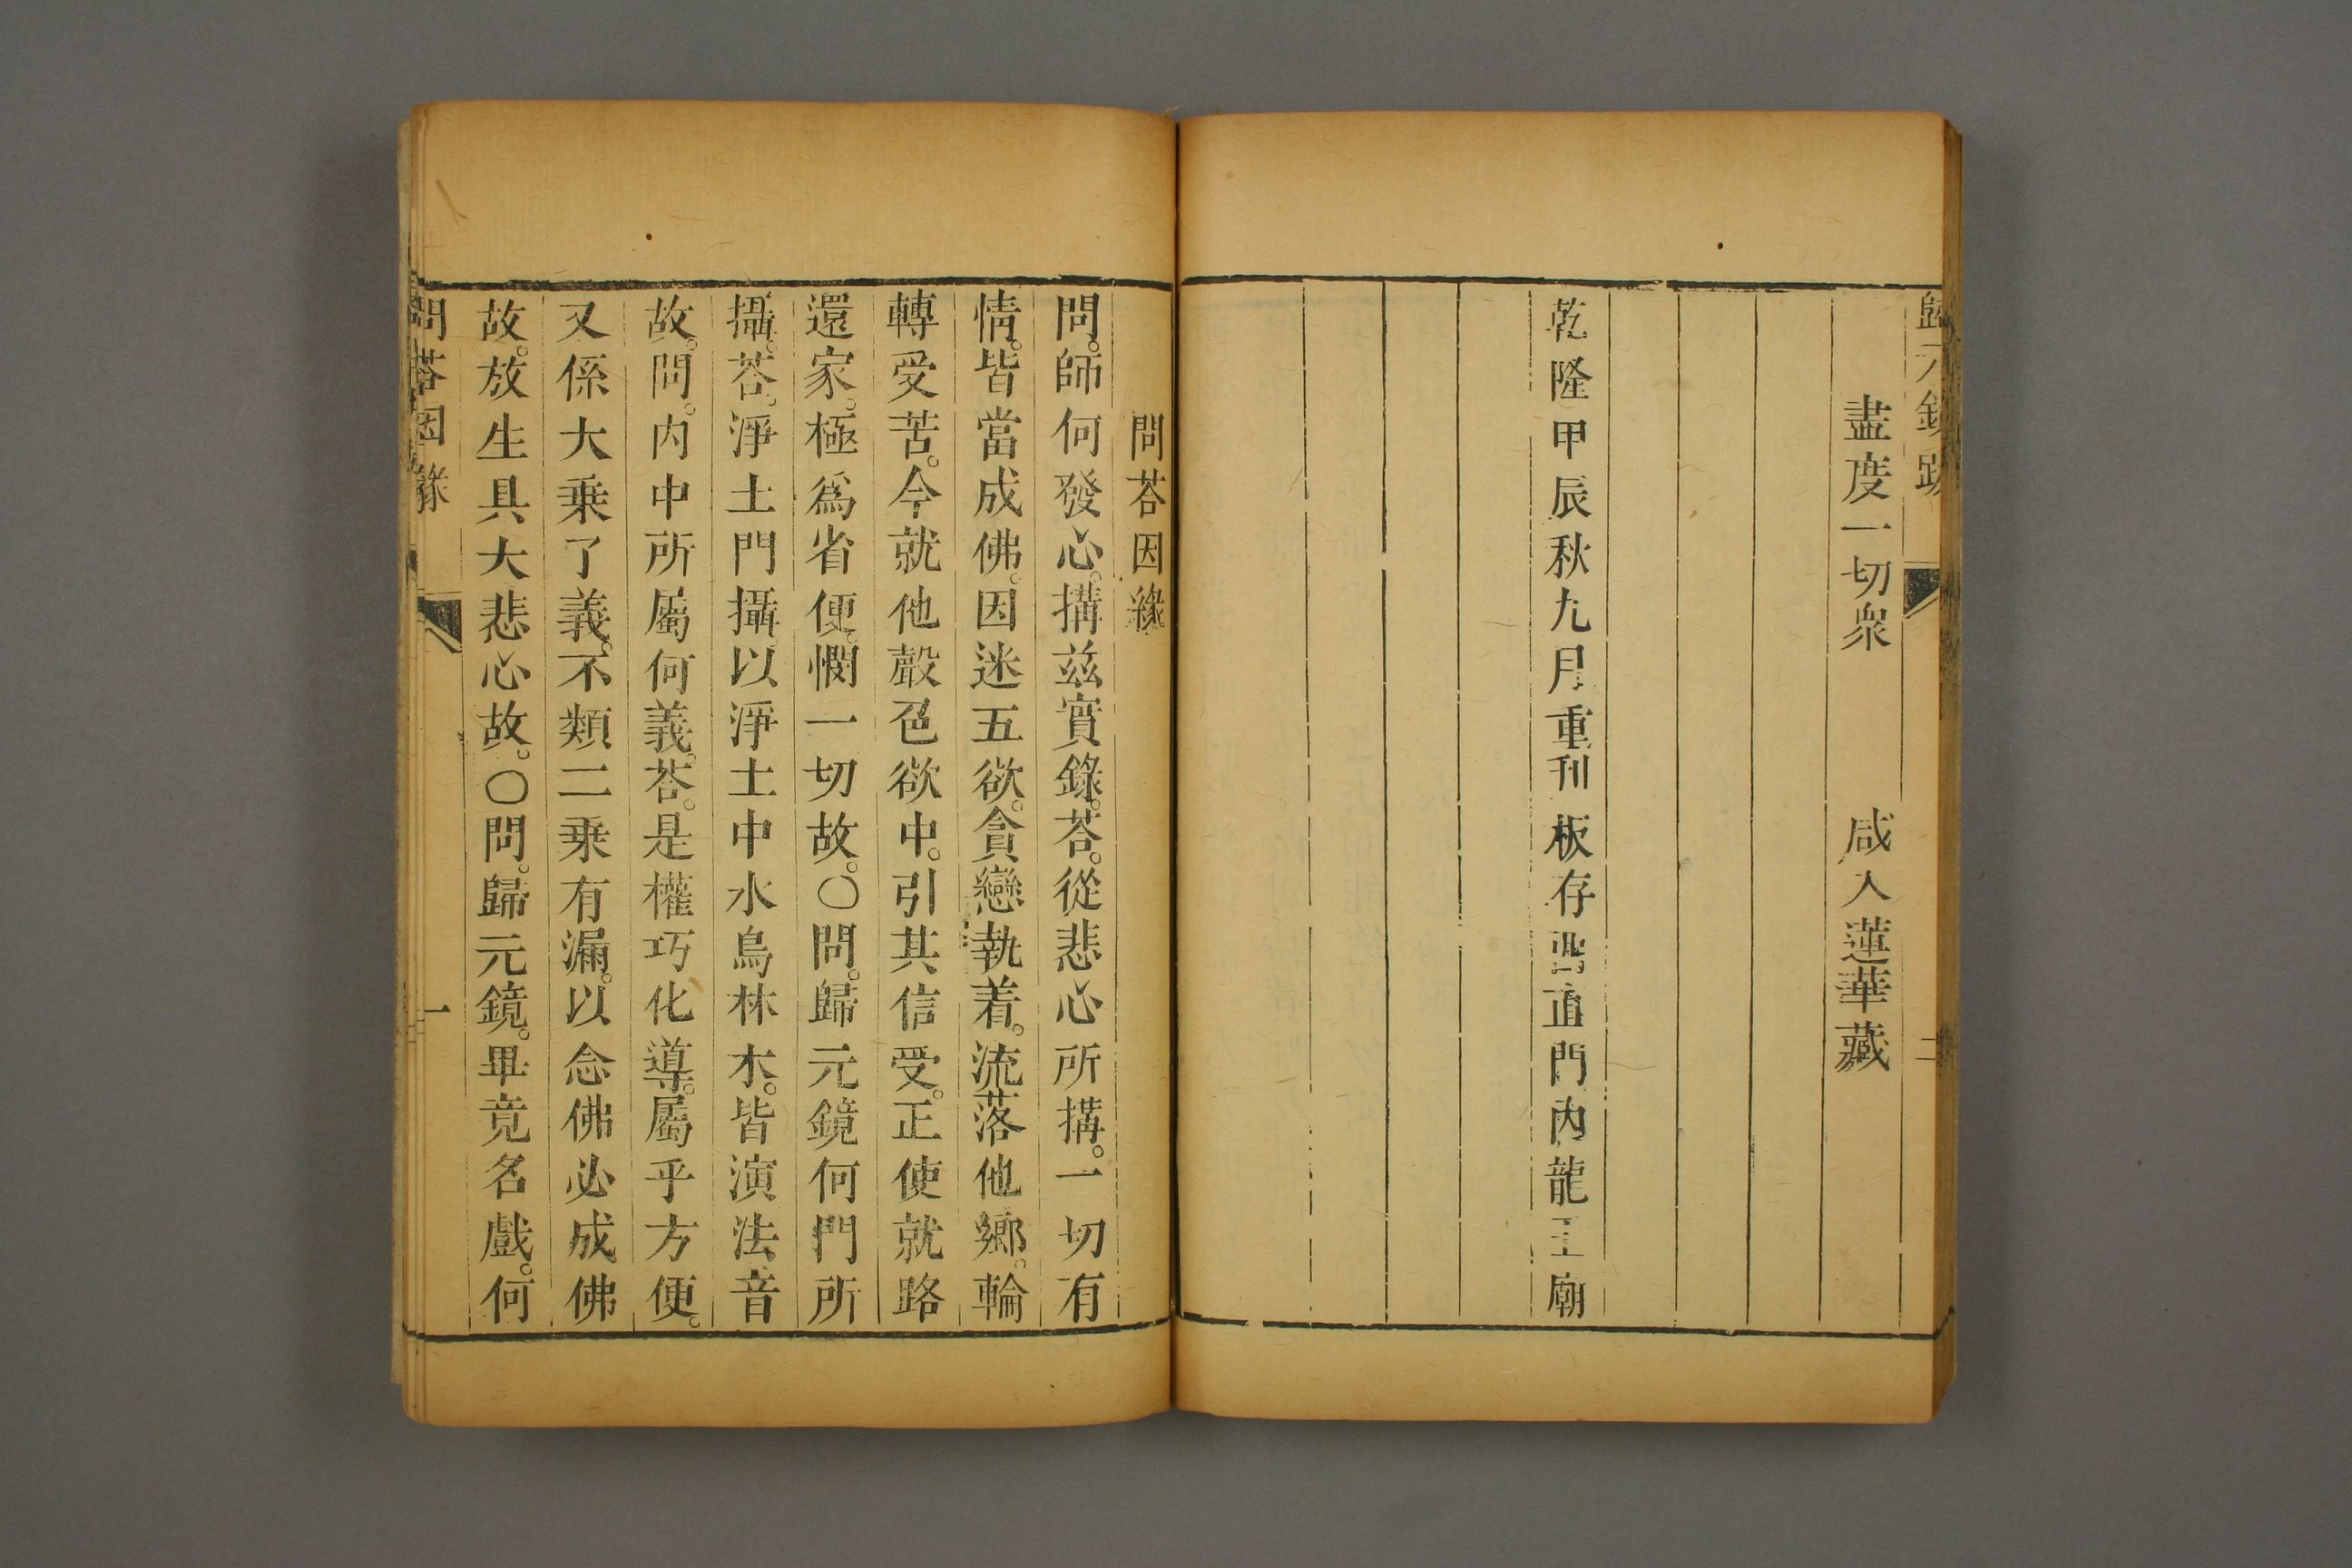 盡度一切衆　咸入蓮華藏
乾隆甲辰秋九月重刊板存西直門內龍王廟
問荅因緣
問。師何發心。搆兹實錄。荅。從悲心所搆。一切有
情。皆當成佛。因迷五欲。貪戀執着。流落他鄉。輪
轉受苦。今就他聲色欲中。引其信受。正使就路
還家。極爲省便。憫一切故。〇問。歸元鏡何門所
攝。荅。淨土門攝。以淨土中水鳥林木。皆演法音
故。問。內中所屬何義。荅。是權巧化導。屬乎方便。
又係大乗了義。不類二乗有漏。以念佛必成佛
故。放生具大悲心故。〇問。歸元鏡。畢竟名戲。何
問荅因緣 一